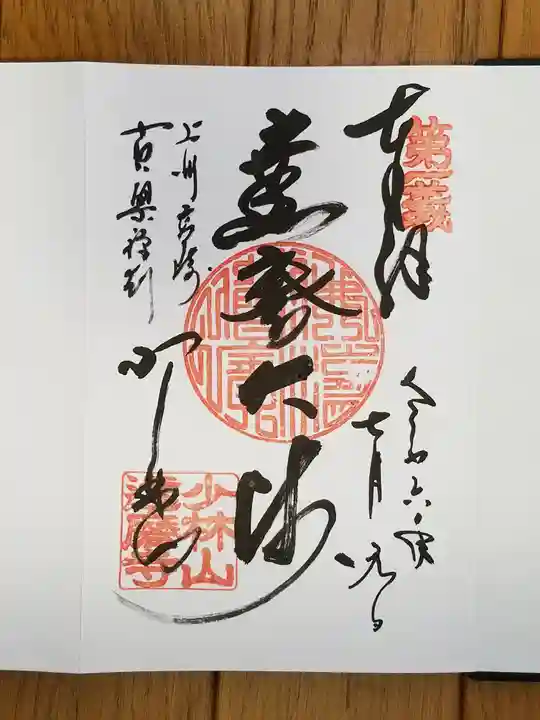 奉拝
第一義
令和六年
七月
達磨大師
上州高崎
黄檗禅刹
少林山
少林山
達磨寺